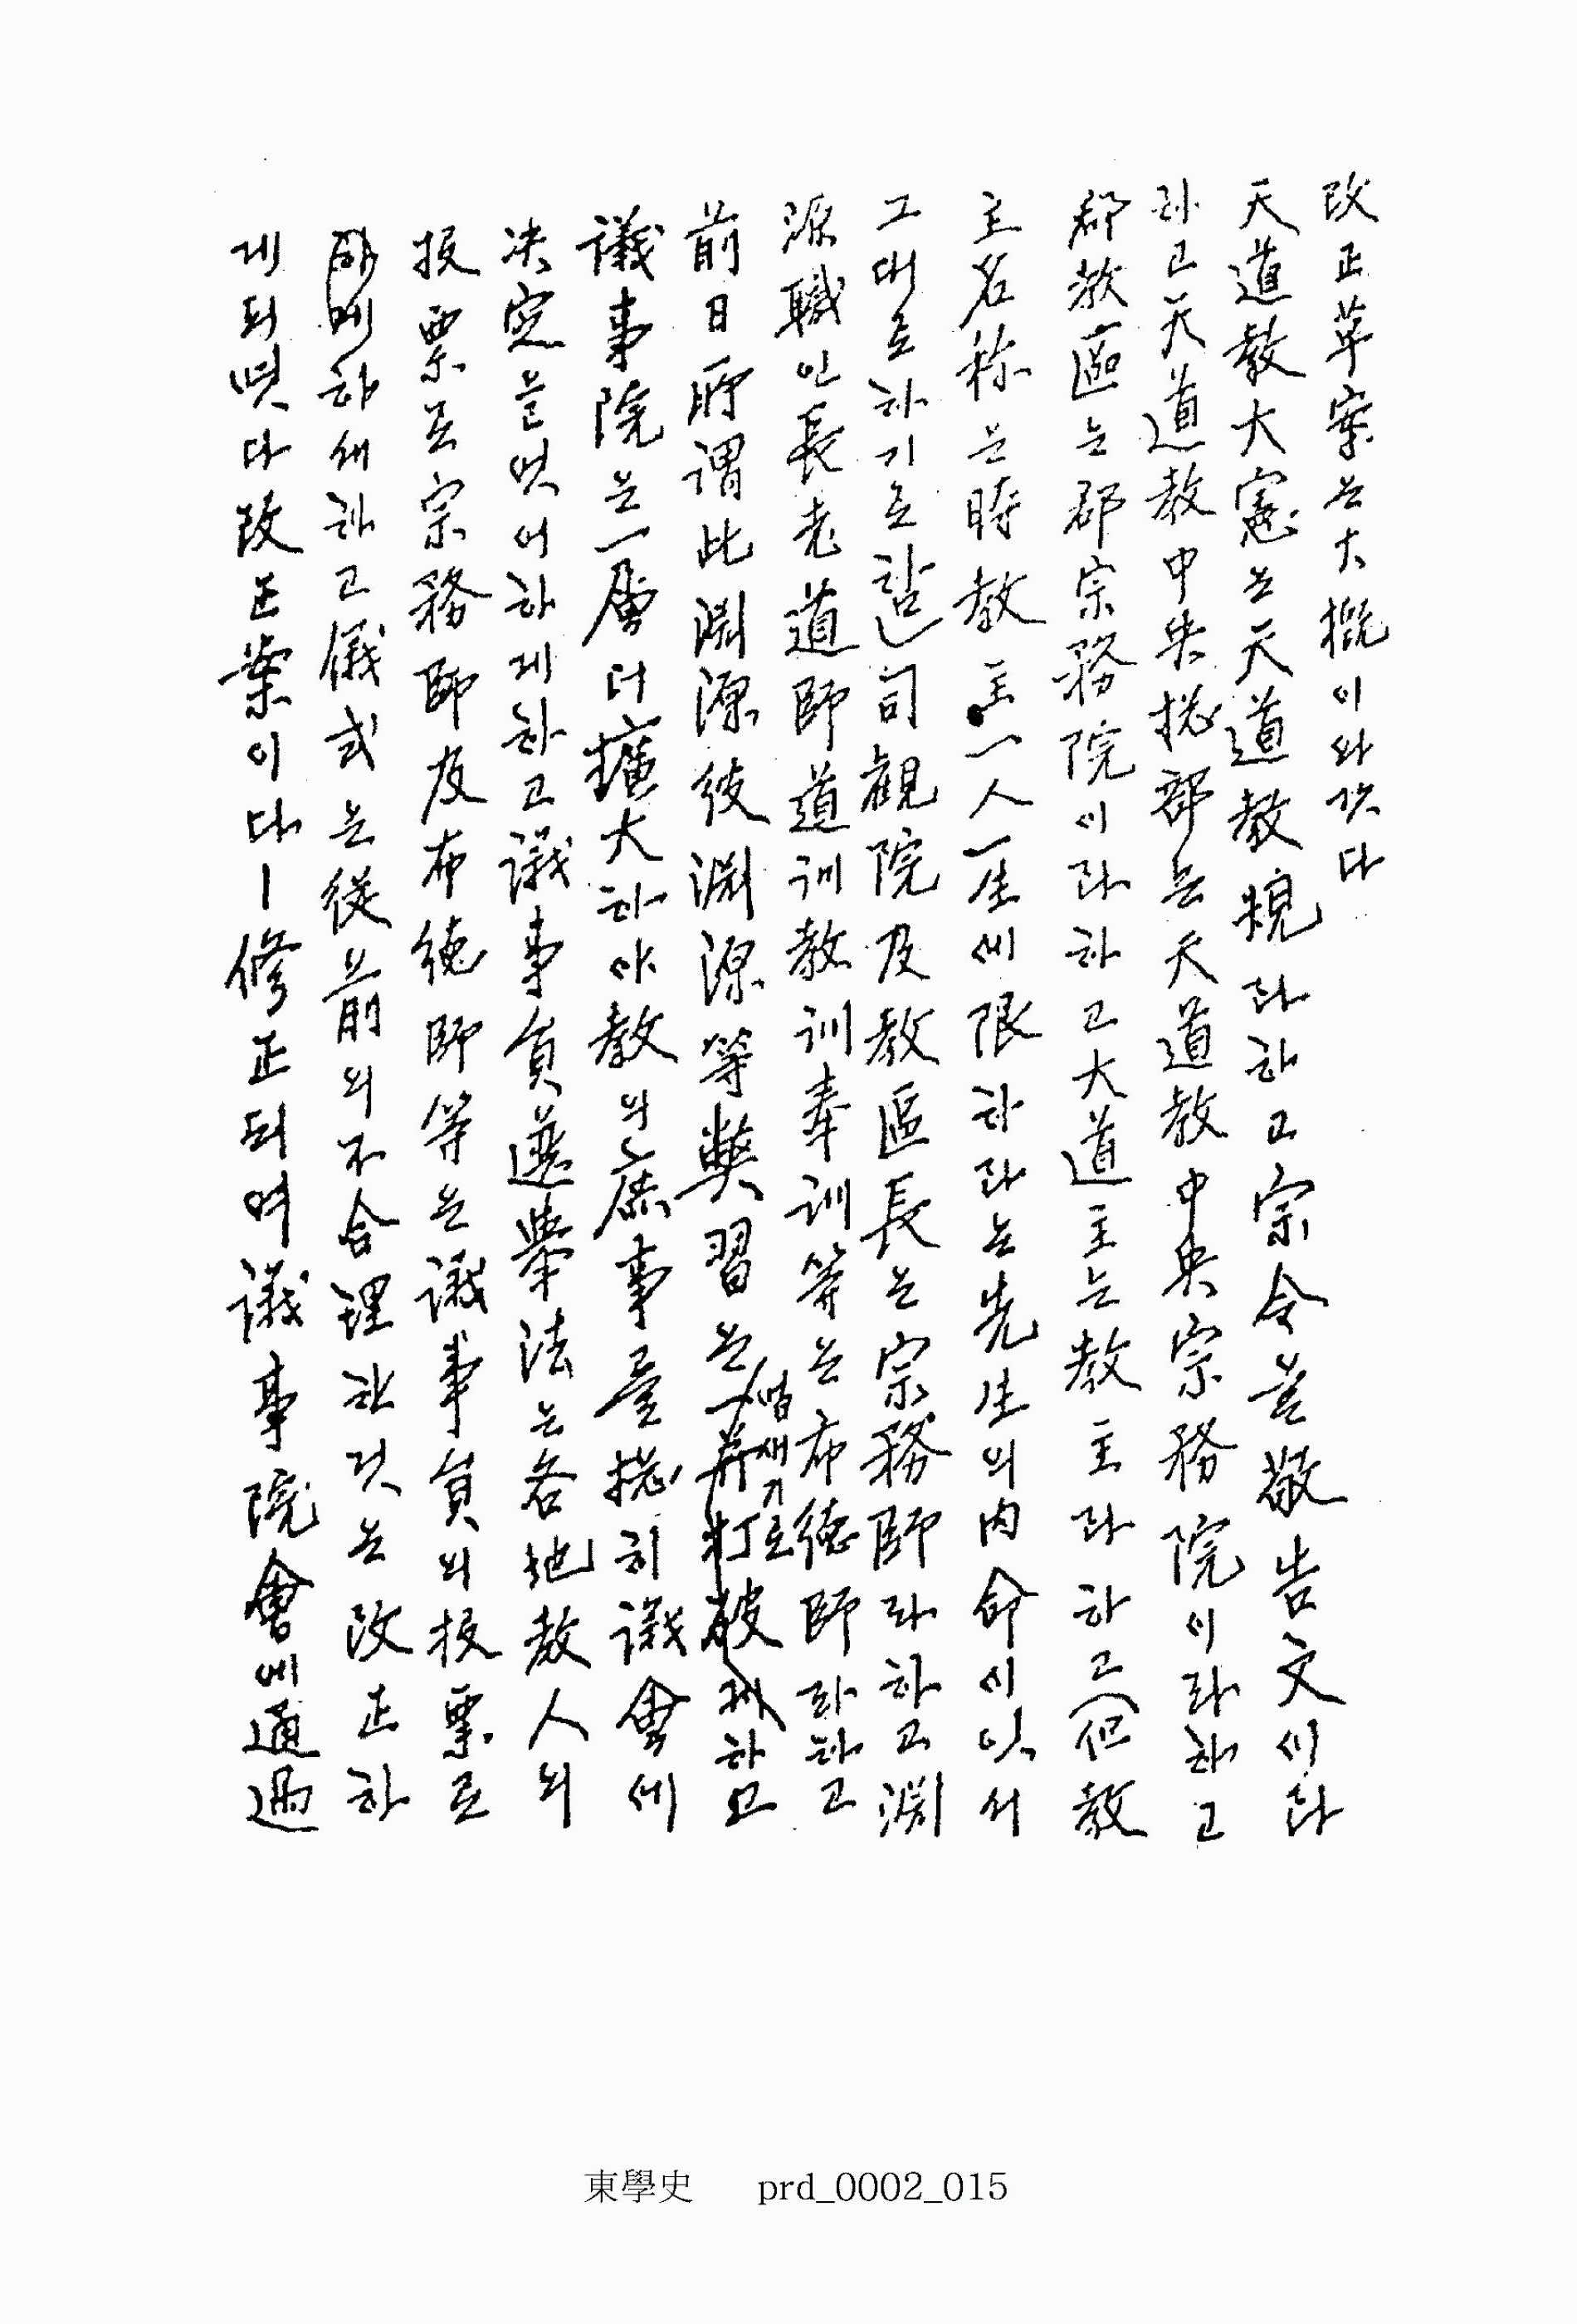 改正草案는 大槪 이와 갓다
天道教大憲은 天道教規라 하고 宗令은 敬告文이라
하고 天道教中央摠部는 天道教中央宗務院이라 하고
郡教區는 郡宗務院이라 하고 大道主는 教主라 하고(但教
主名称은 時教主一人一生에 限하라는 先生의 內命이 잇서
그대로 하기로 함) 司觀院及教區長은 宗務師라 하고 淵
源職인 長老道師道訓教訓奉訓等은 布德師라 하고
前日所謂此淵源彼淵源等弊習은 一並打破하고
議事院은 一層더 擴大하야 教의 庶事를 摠히 議會에
决定을 엇어하게 하고 議事員選擧法은 各地教人의
投票로 宗務師及布德師等은 議事員의 投票로
하게 하고 儀式은 從前의 不合理한 것은 改正하
게 되엿다 改正案이다ー修正되여 議事院會에 通過
東學史 prd_0002_015